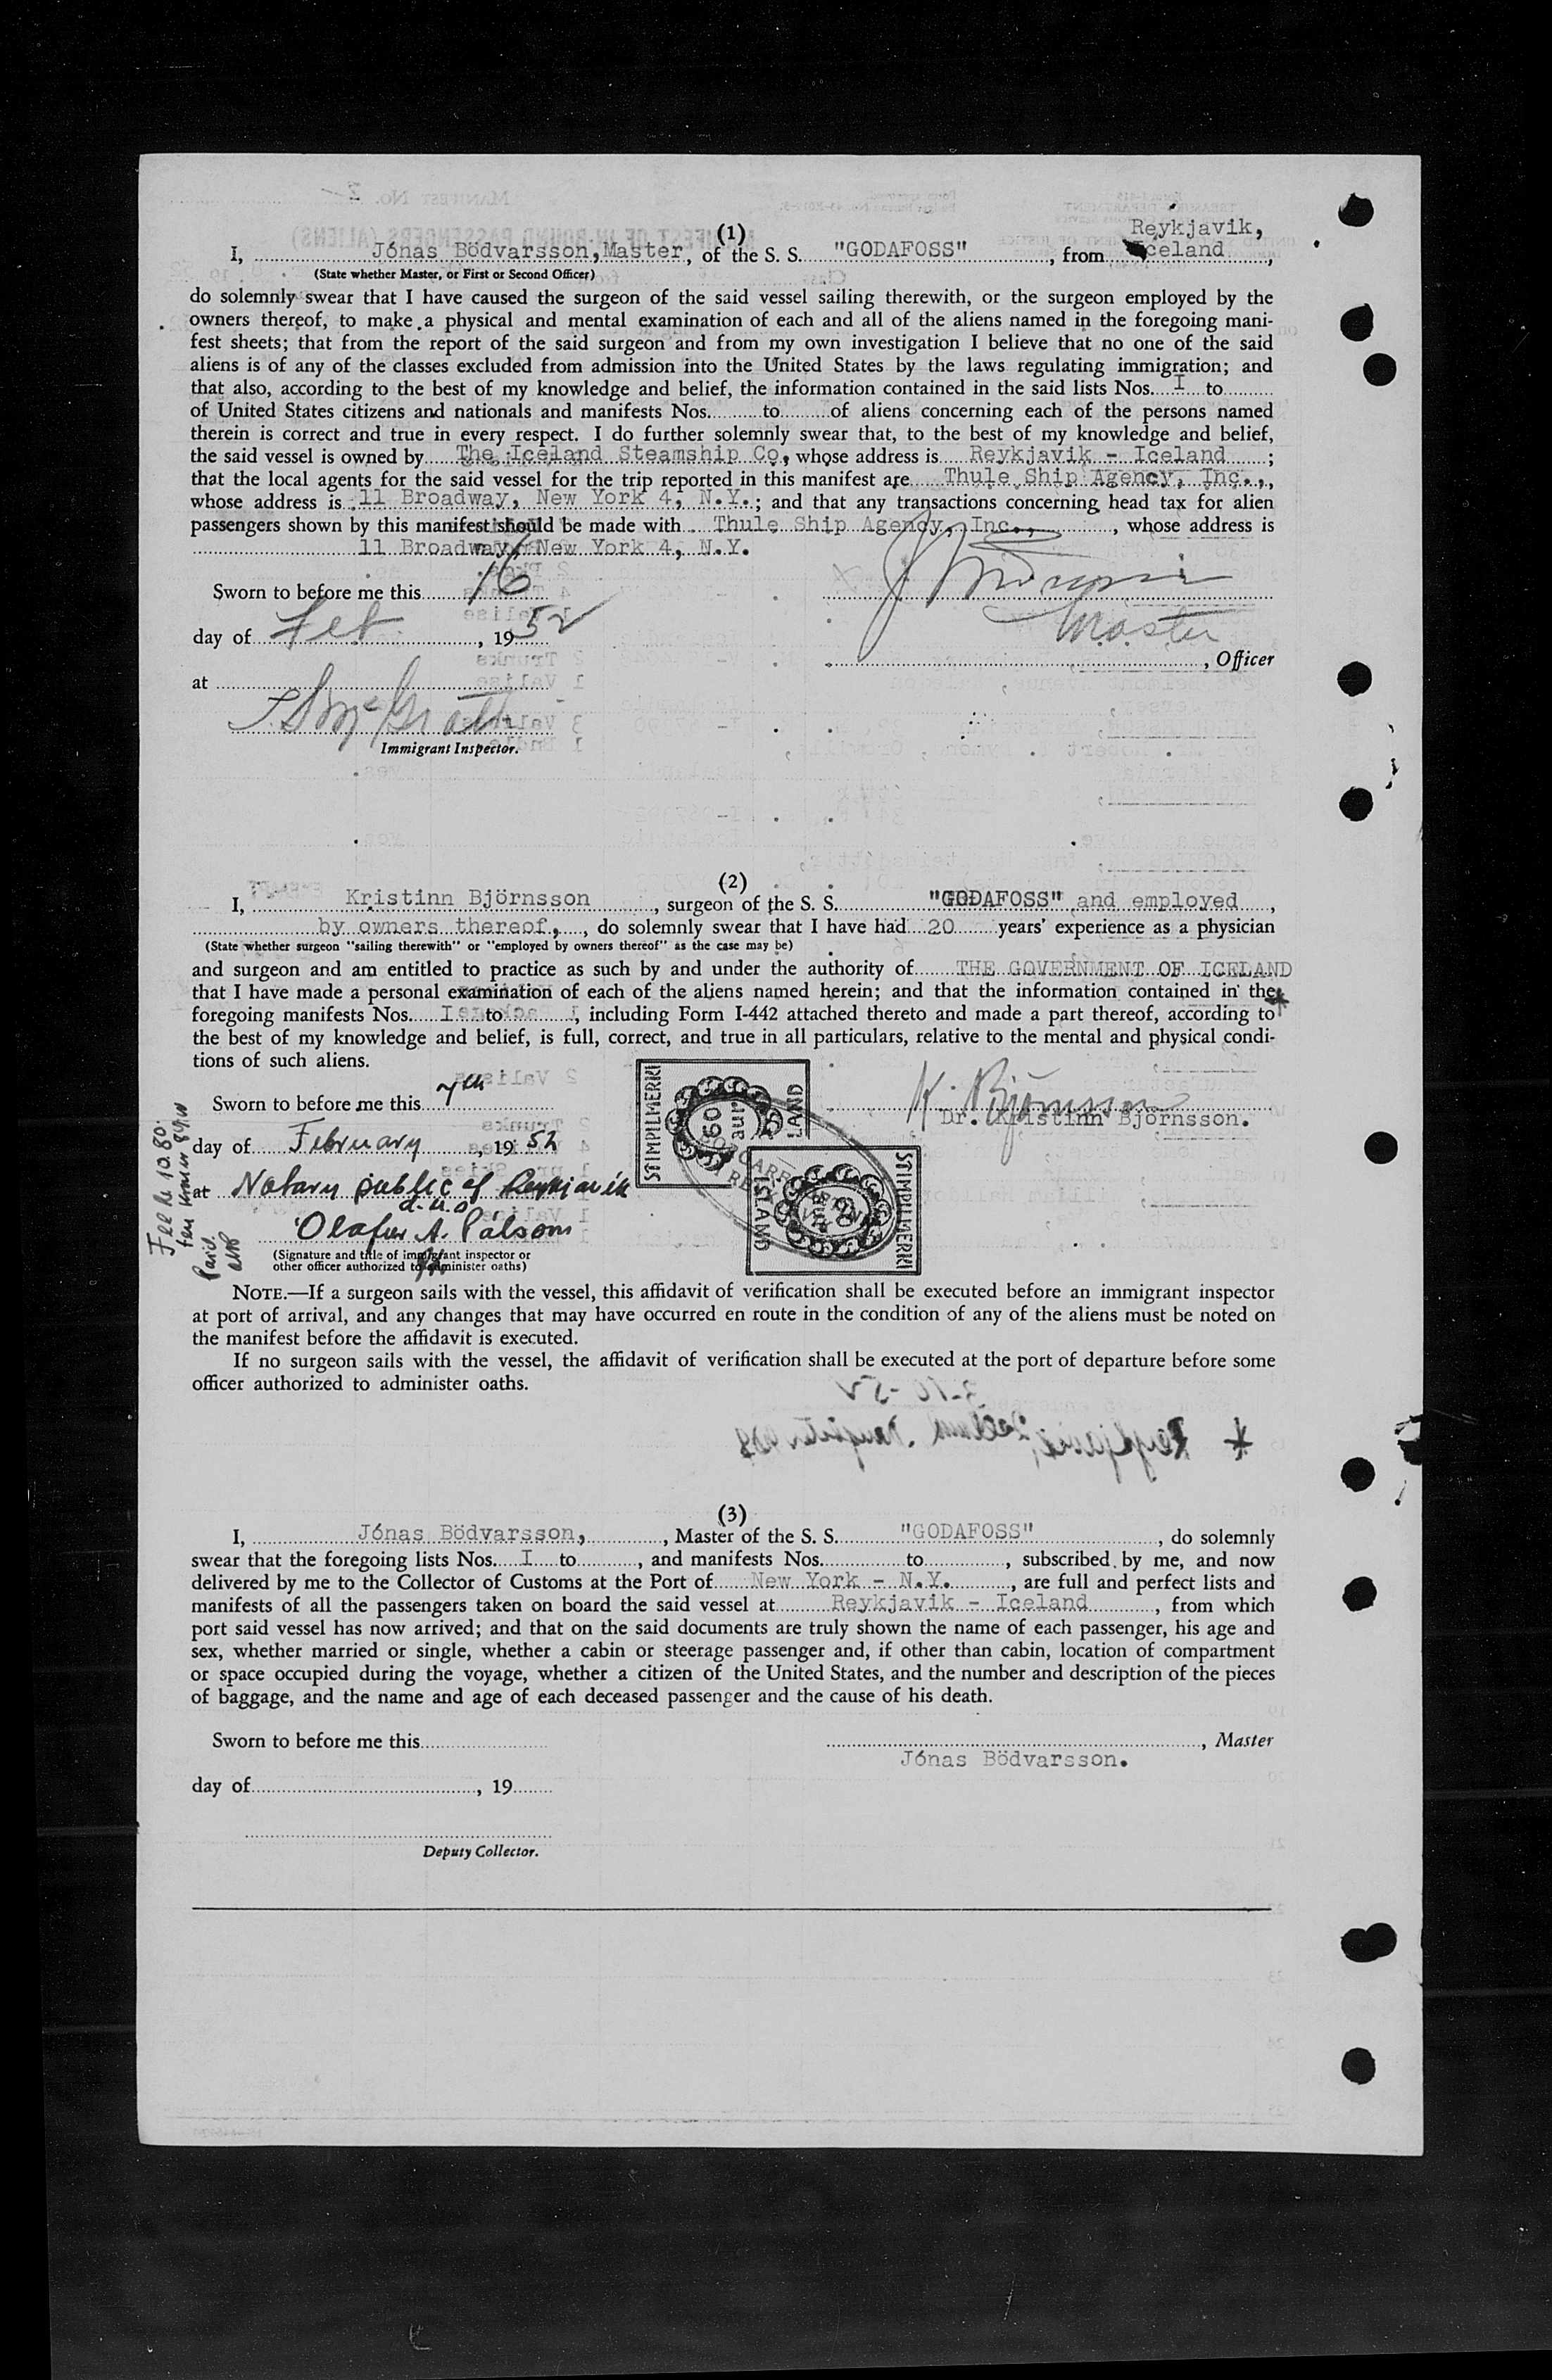 (1)
Reykjavik,
I, Jónas Bödvarsson, Master, of the S. S. "GODAFOSS", from Iceland,
(State whether Master, or First or Second Officer)
do solemnly swear that I have caused the surgeon of the said vessel sailing therewith, or the surgeon employed by the
owners thereof, to make a physical and mental examination of each and all of the aliens named in the foregoing mani-
fest sheets; that from the report of the said surgeon and from my own investigation I believe that no one of the said
aliens is of any of the classes excluded from admission into the United States by the laws regulating immigration; and
that also, according to the best of my knowledge and belief, the information contained in the said lists Nos. I to
of United States citizens and nationals and manifests Nos. to of aliens concerning each of the persons named
therein is correct and true in every respect. I do further solemnly swear that, to the best of my knowledge and belief,
the said vessel is owned by The Iceland Steamship Co, whose address is Reykjavik - Iceland;
that the local agents for the said vessel for the trip reported in this manifest are Thule Ship Agency, Inc.,
whose address is 11 Broadway, New York 4, N.Y.; and that any transactions concerning head tax for alien
passengers shown by this manifest should be made with Thule Ship Agency, Inc., whose address is
11 Broadway, New York 4, N.Y.
Sworn to before me this 16
day of Feb., 1952
Master
, Officer
at
Immigrant Inspector.
(2)
I, Kristinn Björnsson, surgeon of the S. S. "GODAFOSS" and employed,
by owners thereof, do solemnly swear that I have had 20 years' experience as a physician
(State whether surgeon "sailing therewith" or "employed by owners thereof" as the case may be)
and surgeon and am entitled to practice as such by and under the authority of THE GOVERNMENT OF ICELAND
that I have made a personal examination of each of the aliens named herein; and that the information contained in the
foregoing manifests Nos. I to , including Form I-442 attached thereto and made a part thereof, according to
the best of my knowledge and belief, is full, correct, and true in all particulars, relative to the mental and physical condi-
tions of such aliens.
Sworn to before me this 7th
K. Björnsson
Dr. Kristinn Björnsson.
day of February, 1952
at Notary public of Reykjavik
Olafur A. Pálsson
(Signature and title of immigrant inspector or
other officer authorized to administer oaths)
Fee kr 10.80.
Paid.
STIMPILMERKI
60
aur
ISLAND
STIMPILMERKI
NOTE.—If a surgeon sails with the vessel, this affidavit of verification shall be executed before an immigrant inspector
at port of arrival, and any changes that may have occurred en route in the condition of any of the aliens must be noted on
the manifest before the affidavit is executed.
If no surgeon sails with the vessel, the affidavit of verification shall be executed at the port of departure before some
officer authorized to administer oaths.
(3)
I, Jónas Bödvarsson, , Master of the S. S. "GODAFOSS", do solemnly
swear that the foregoing lists Nos. I to , and manifests Nos. to , subscribed by me, and now
delivered by me to the Collector of Customs at the Port of New York - N.Y. , are full and perfect lists and
manifests of all the passengers taken on board the said vessel at Reykjavik - Iceland, from which
port said vessel has now arrived; and that on the said documents are truly shown the name of each passenger, his age and
sex, whether married or single, whether a cabin or steerage passenger and, if other than cabin, location of compartment
or space occupied during the voyage, whether a citizen of the United States, and the number and description of the pieces
of baggage, and the name and age of each deceased passenger and the cause of his death.
Sworn to before me this
, Master
Jónas Bödvarsson.
day of , 19
Deputy Collector.